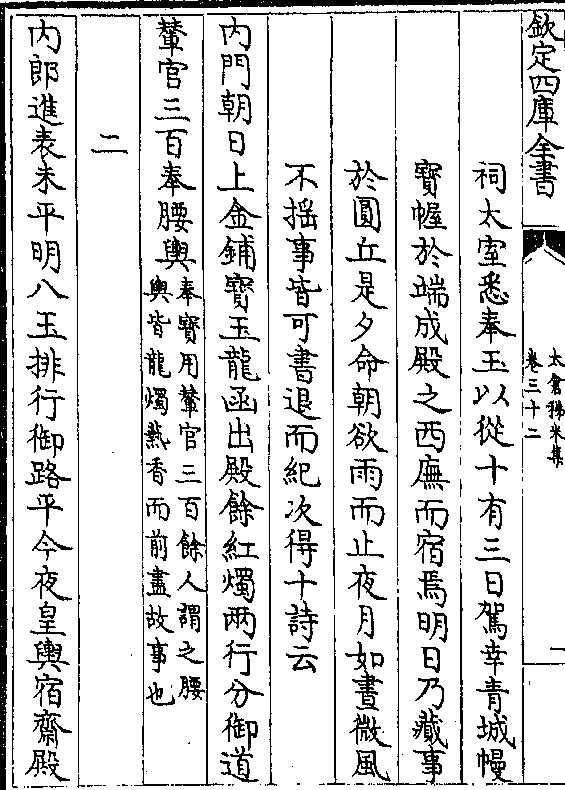 欽定四庫全書
太倉稊米集
卷三十二
一
祠太室悉奉玉以從十有三日駕幸青城幔
寳幄於端成殿之西廡而宿焉明日乃蕆事
於圓丘是夕命朝欲雨而止夜月如晝微風
不揺事皆可書退而紀次得十詩云
内門朝日上金鋪寳玉龍函出殿餘紅燭两行分御道
輦官三百奉腰輿奉寳用輦官三百餘人謂之腰
輿皆龍燭爇香而前盡故事也
二
内郎進表未平明八玉排行御路平今夜皇輿宿齋殿